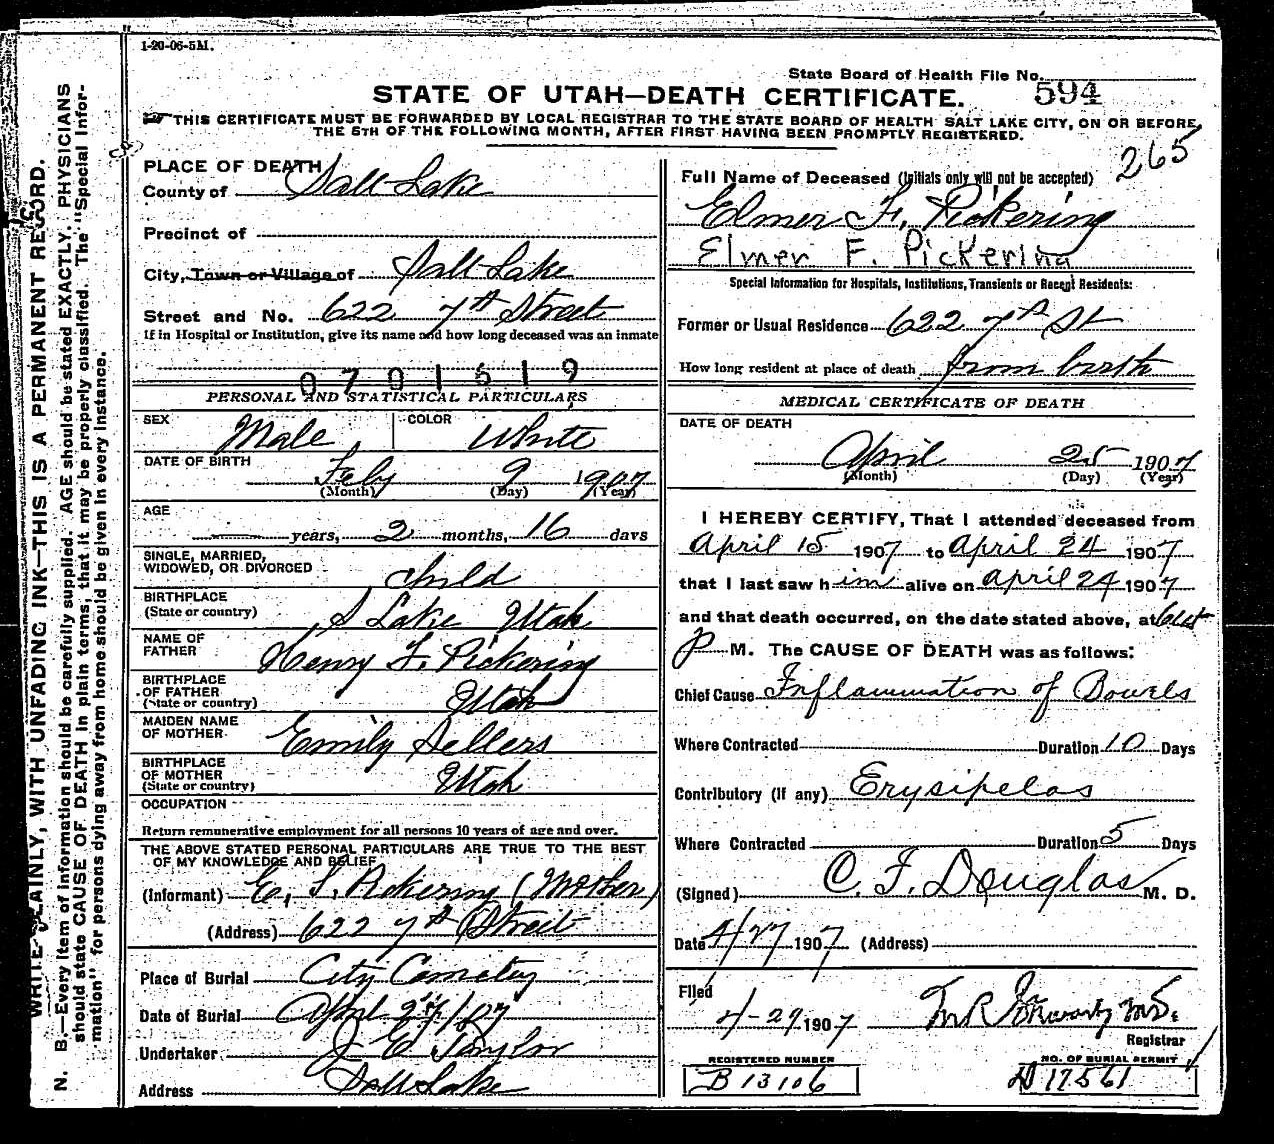 1-20-06-5M.
State Board of Health File No. 594
STATE OF UTAH—DEATH CERTIFICATE.
THIS CERTIFICATE MUST BE FORWARDED BY LOCAL REGISTRAR TO THE STATE BOARD OF HEALTH SALT LAKE CITY, ON OR BEFORE
THE 5TH OF THE FOLLOWING MONTH, AFTER FIRST HAVING BEEN PROMPTLY REGISTERED.
265
WRITE PLAINLY, WITH UNFADING INK—THIS IS A PERMANENT RECORD.
N. B.—Every item of information should be carefully supplied. AGE should be stated EXACTLY. PHYSICIANS
should state CAUSE OF DEATH in plain terms, that it may be properly classified. The "Special Infor-
mation" for persons dying away from home should be given in every instance.
PLACE OF DEATH
County of Salt Lake
Precinct of
City, Town or Village of Salt Lake
Street and No. 622 7th Street
If in Hospital or Institution, give its name and how long deceased was an inmate
0701519
PERSONAL AND STATISTICAL PARTICULARS
SEX Male COLOR White
DATE OF BIRTH Feby 9 1907
(Month) (Day) (Year)
AGE
years, 2 months, 16 days
SINGLE, MARRIED,
WIDOWED, OR DIVORCED Child
BIRTHPLACE
(State or country) S Lake Utah
NAME OF
FATHER Henry F. Pickering
BIRTHPLACE
OF FATHER
(State or country) Utah
MAIDEN NAME
OF MOTHER Emily Sellers
BIRTHPLACE
OF MOTHER
(State or country) Utah
OCCUPATION
Return remunerative employment for all persons 10 years of age and over.
THE ABOVE STATED PERSONAL PARTICULARS ARE TRUE TO THE BEST
OF MY KNOWLEDGE AND BELIEF
(Informant) E. S. Pickering (Mother)
(Address) 622 7th Street
Place of Burial City Cemetery
Date of Burial April 27/07
Undertaker J E Taylor
Address Salt Lake
Full Name of Deceased (Initials only will not be accepted)
Elmer F. Pickering
Elmer F. Pickering
Special Information for Hospitals, Institutions, Transients or Recent Residents:
Former or Usual Residence 622 7th St
How long resident at place of death from birth
MEDICAL CERTIFICATE OF DEATH
DATE OF DEATH
April 25 1907
(Month) (Day) (Year)
I HEREBY CERTIFY, That I attended deceased from
April 15 1907 to April 24 1907
that I last saw him alive on April 24 1907
and that death occurred, on the date stated above, at
P M. The CAUSE OF DEATH was as follows:
Chief Cause Inflammation of Bowels
Where Contracted Duration 10 Days
Contributory (if any) Erysipelas
Where Contracted Duration 5 Days
(Signed) C. F. Douglas M. D.
Date 4/27 1907 (Address)
Filed
4-29 1907
Registrar
REGISTERED NUMBER NO. OF BURIAL PERMIT
B 13106 D 17561